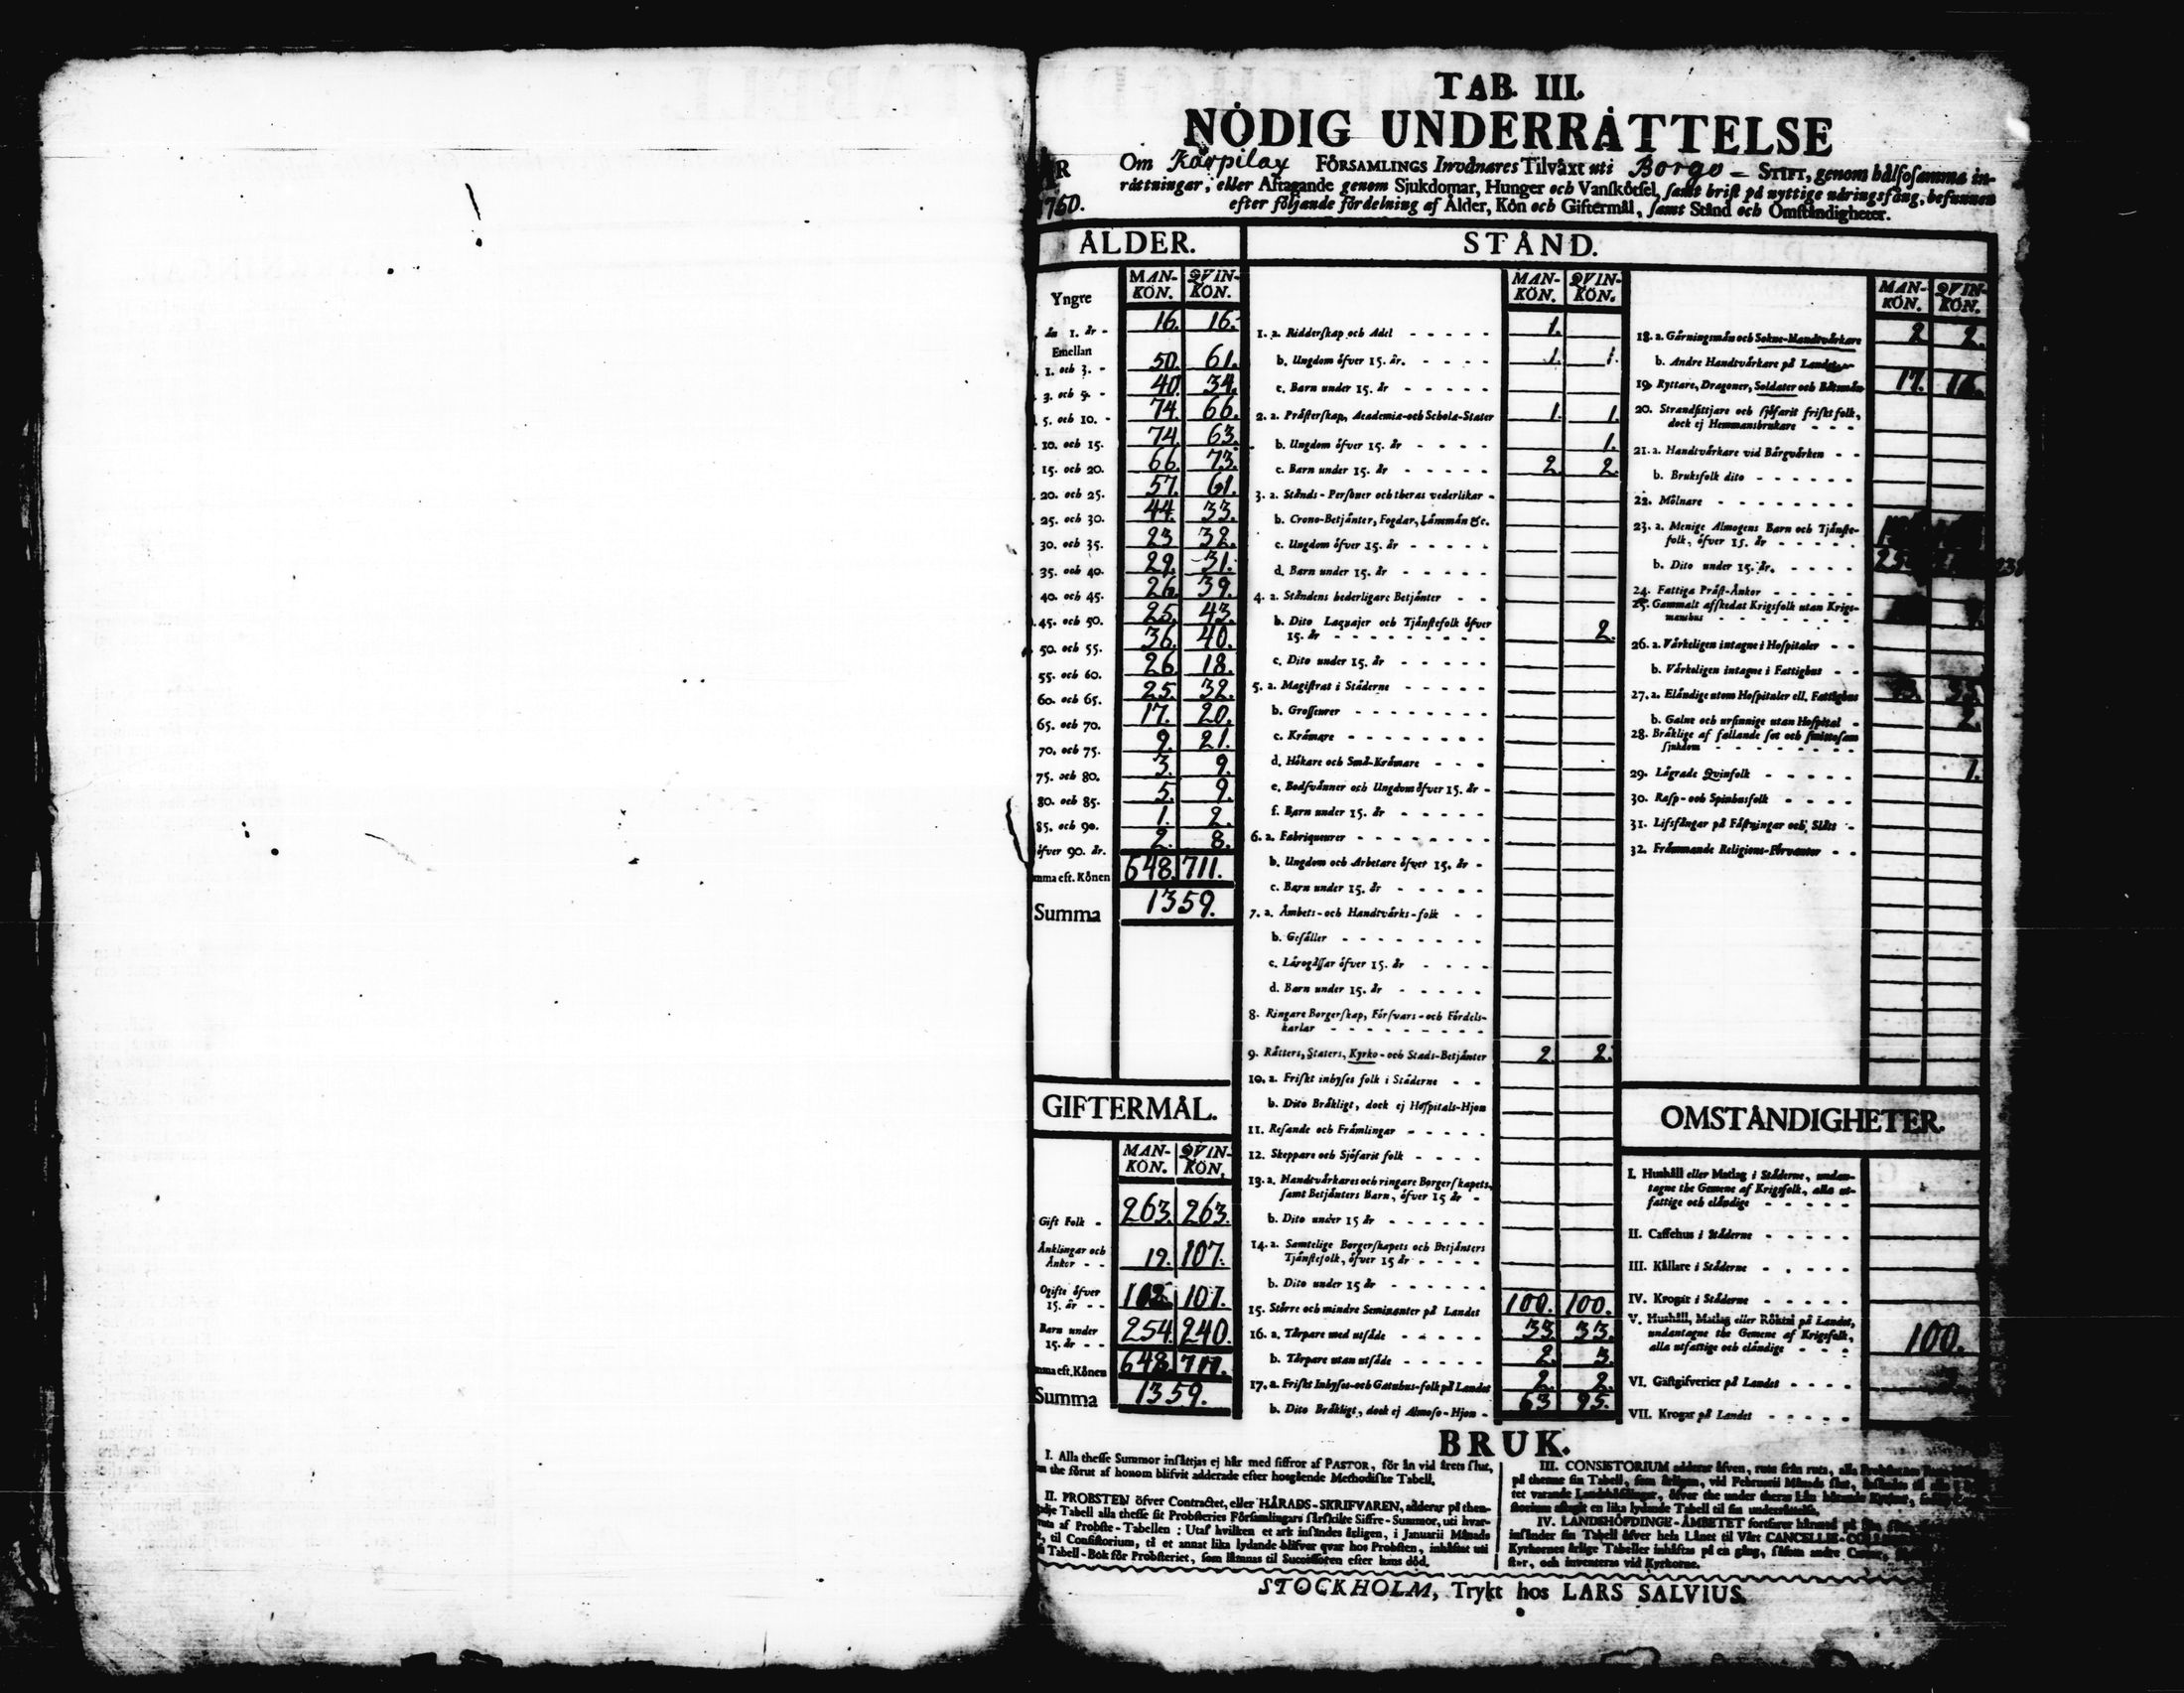 TAB. III.
NÖDIG UNDERRÄTTELSE
ÅR Om Kärpilax FÖRSAMLINGS Invånares Tilväxt uti Borgo – STIFT, genom hälsosamma in-
rättningar, eller Aftagande genom Sjukdomar, Hunger och Vanskötsel, samt brist på nyttige näringsfång, befunnen
1760. efter följande fördelning af Ålder, Kön och Giftermål, samt Stånd och Omständigheter.
ÅLDER.
MAN-KÖN. QVIN-KÖN.
Yngre
än 1. år - 16. 16.
Emellan
1. och 3. - 50. 61.
3. och 5. - 40. 34.
5. och 10. - 74. 66.
10. och 15. 74. 63.
15. och 20. 66. 73.
20. och 25. 57. 61.
25. och 30. 44. 33.
30. och 35. 23 32.
35. och 40. 29. 31.
40. och 45. 26. 39.
45. och 50. 25. 43.
50. och 55. 36. 40.
55. och 60. 26. 18.
60. och 65. 25. 32.
65. och 70. 17. 20.
70. och 75. 9. 21.
75. och 80. 3. 9.
80. och 85. 5. 9.
85. och 90. 1. 2.
öfver 90. år. 2. 8.
mma eft. Könen 648. 711.
Summa 1359.
GIFTERMÅL.
MAN-KÖN. QVIN-KÖN.
Gift Folk - 263. 263.
Änklingar och
Änkor - - 19. 107.
Ogifte öfver
15. år - - 107.
Barn under
15. år - - 254. 240.
mma eft. Könen 648. 711.
Summa 1359.
STÅND.
MAN-KÖN. QVIN-KÖN.
1. a. Ridderskap och Adel - - - - - 1.
b. Ungdom öfver 15. år. - - - - 1. 1.
c. Barn under 15. år - - - - -
2. a. Prästerskap, Academiæ-och Scholæ-Stater 1. 1.
b. Ungdom öfver 15. år - - - - 1.
c. Barn under 15. år - - - - - 2. 2.
3. a. Stånds-Personer och theras vederlikar -
b. Crono-Betjänter, Fogdar, Länsmän &c.
c. Ungdom öfver 15. år - - - - -
d. Barn under 15. år - - - - -
4. a. Ståndens hederligare Betjänter - -
b. Dito Laquajer och Tjänstefolk öfver
15. år - - - - - - - - - 2.
c. Dito under 15. år - - - - -
5. a. Magistrat i Städerne - - - - -
b. Grosseurer - - - - - - - -
c. Krämare - - - - - - - -
d. Hökare och Små-Krämare - - -
e. Bodsvänner och Ungdom öfver 15. år -
f. Barn under 15. år - - - - -
6. a. Fabriqueurer - - - - - - - -
b. Ungdom och Arbetare öfver 15. år -
c. Barn under 15. år - - - - -
7. a. Ämbets-och Handtvärks-folk - -
b. Gesäller - - - - - - - -
c. Lärogåssar öfver 15. år - - - -
d. Barn under 15. år - - - - -
8. Ringare Borgerskap, Försvars-och Fördels-
karlar - - - - - - - - -
9. Rätters, Staters, Kyrko-och Stads-Betjänter 2. 2.
10. a. Friskt inhyses folk i Städerne - -
b. Dito Bräkligt, dock ej Hospitals-Hjon
11. Resande och Främlingar - - - - -
12. Skeppare och Sjöfarit folk - - - -
13. a. Handtvärkares och ringare Borgerskapets,
samt Betjänters Barn, öfver 15 år -
b. Dito under 15 år - - - - - -
14. a. Samtelige Borgerskapets och Betjänters
Tjänstefolk, öfver 15 år - - - -
b. Dito under 15 år - - - - - -
15. Större och mindre Hemmanter på Landet 100. 100.
16. a. Tårpare med utsäde - - - - - 33. 33.
b. Tårpare utan utsäde - - - - - 2. 3.
17. a. Friskt Inhyses-och Gatuhus-folk på Landet 2. 2.
b. Dito Bräkligt, dock ej Almoso-Hjon - 63 95.
MAN-KÖN. QVIN-KÖN.
18. a. Gärningsmän och Sokne-Handtvärkare 2 2.
b. Andre Handtvärkare på Landet
19. Ryttare, Dragoner, Soldater och Båtsmän 17. 16.
20. Strandsittjare och sjöfarit friskt folk,
dock ej Hemmansbrukare - - -
21. a. Handtvärkare vid Bärgvärken - -
b. Bruksfolk dito - - - - - -
22. Mölnare - - - - - - - -
23. a. Menige Almogens Barn och Tjänste-
folk, öfver 15. år - - - - -
b. Dito under 15. år. - - - -
24. Fattiga Präst-Änkor - - - - -
25. Gammalt afskedat Krigsfolk utan Krigs-
manshus - - - - - - - -
26. a. Värkeligen intagne i Hospitaler - -
b. Värkeligen intagne i Fattighus - -
27. a. Eländige utom Hospitaler ell. Fattighus
b. Galne och ursinnige utan Hospital - 2.
28. Bräklige af fallande sot och smittosam
sjukdom - - - - - - - -
29. Lägrade Qvinfolk - - - - - 1.
30. Rasp-och Spinhusfolk - - - -
31. Lifsfångar på Fästningar och Slått -
32. Främmande Religions-Förvanter - -
OMSTÄNDIGHETER.
I. Hushåll eller Matlag i Städerne, undan-
tagne the Gemene af Krigsfolk, alla ut-
fattige och eländige - - - - -
II. Caffehus i Städerne - - - - -
III. Källare i Städerne - - - - -
IV. Krogar i Städerne - - - - -
V. Hushåll, Matlag eller Röktal på Landet,
undantagne the Gemene af Krigsfolk,
alla utfattige och eländige - - - 100.
VI. Gästgifverier på Landet - - - -
VII. Krogar på Landet - - - - -
BRUK.
I. Alla thesse Summor insättjas ej här med siffror af PASTOR, för än vid årets slut,
the förut af honom blifvit adderade efter hosgående Methodiske Tabell.
II. PROBSTEN öfver Contractet, eller HÄRADS-SKRIFVAREN, adderar på then-
Tabell alla thesse sit Probsteries Församlingars särskilte Siffre-Summor, uti hvar-
ruta af Probste-Tabellen: Utaf hvilken et ark insändes årligen, i Januarii Månads
til Consistorium, tå et annat lika lydande blifver qvar hos Probsten, inhäftat uti
Tabell-Bok för Probsteriet, som lämnas til Successoren efter hans död.
III. CONSISTORIUM adderar äfven, ruta från ruta, alla
på thenne sin Tabell, som årligen, vid Februarii Månads slut,
tet varande Landshöfdingar, öfver the under theras Län hörande Kyrkor,
storium aflagt en lika lydande Tabell til sin underrättelse.
IV. LANDSHÖFDINGE-ÄMBETET fortfarer härmed på
insänder sin Tabell öfver hela Länet til Vårt CANCELLIE-
Kyrkornes årlige Tabeller inhäftas på en gång,
och inventeras vid Kyrkorne.
STOCKHOLM, Trykt hos LARS SALVIUS.